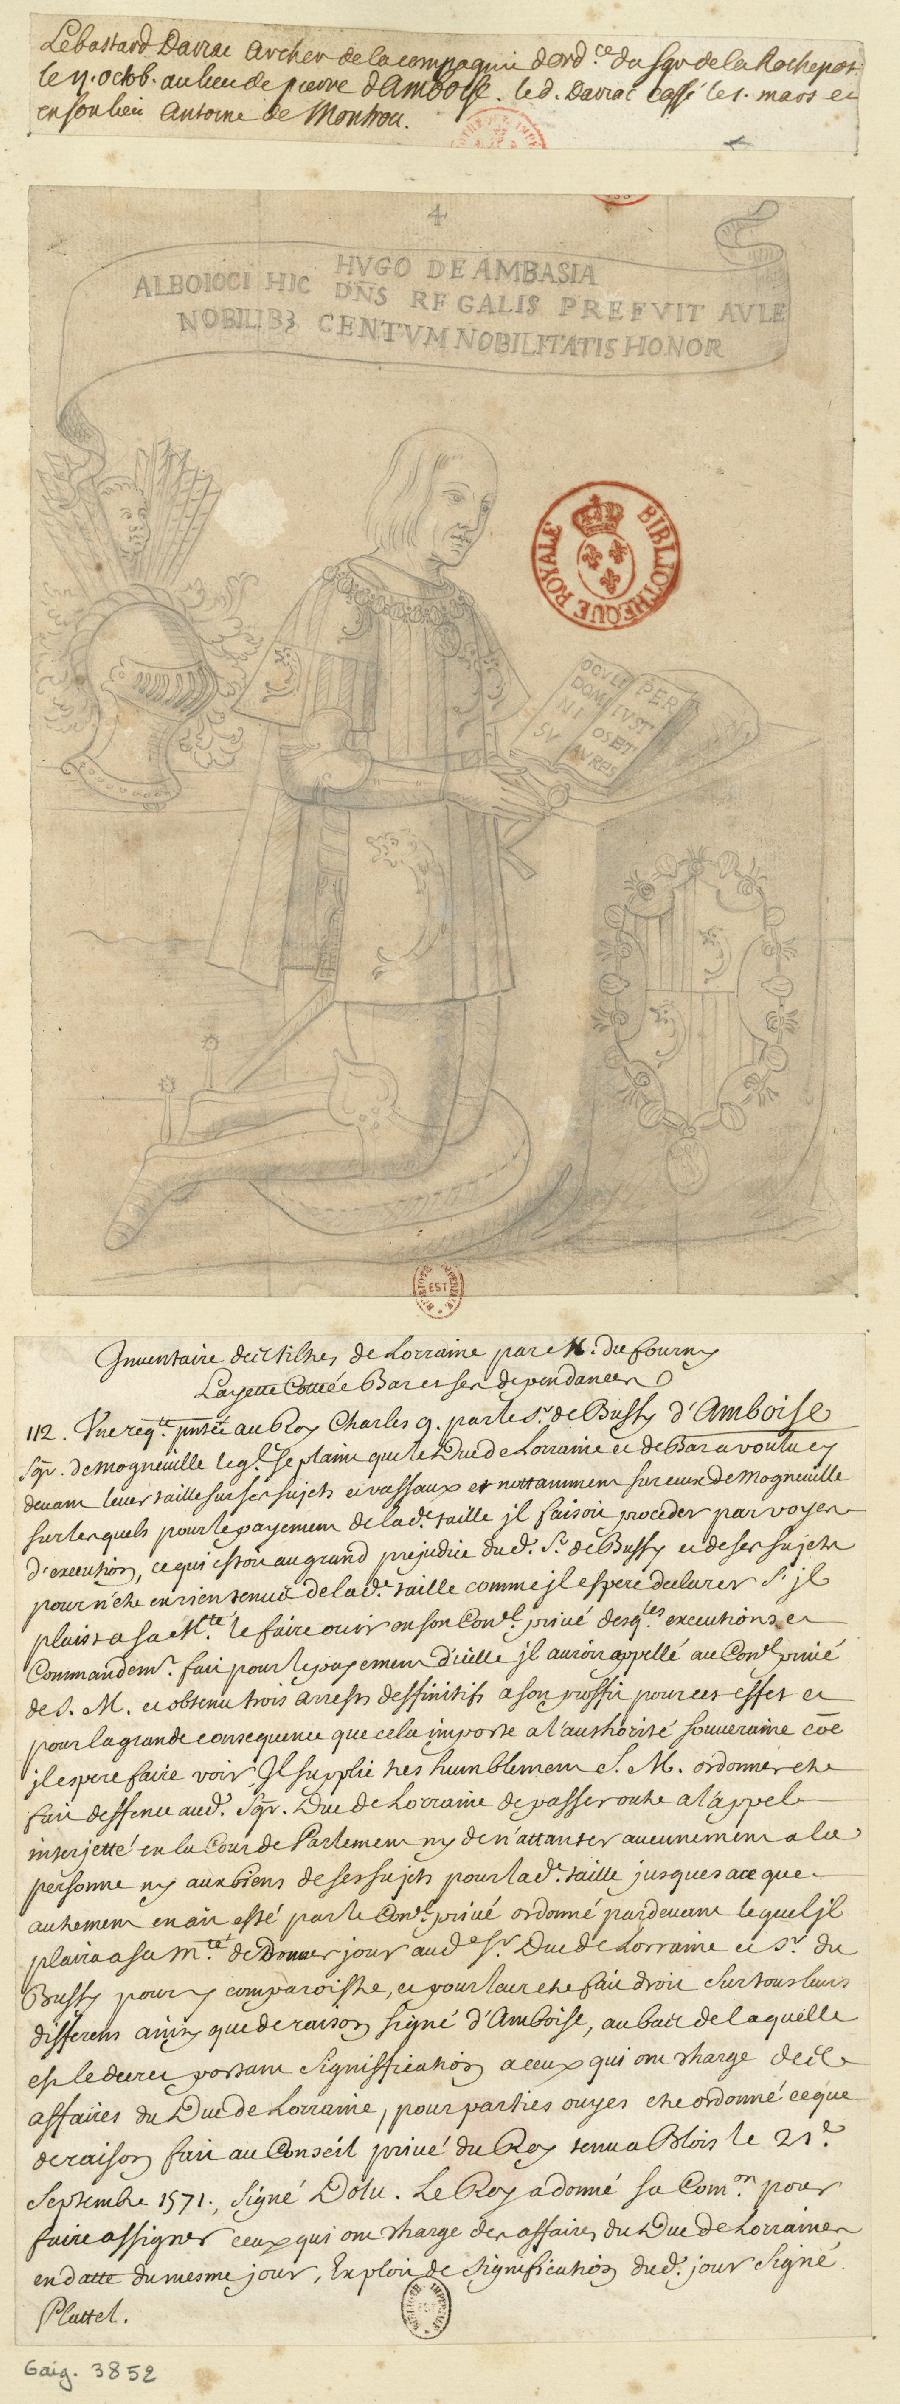 Lebastard Davrac Archer de la compagnie dord.ce du Sgr de la Rochepot
le 11. octob. au lieu de pierre d'Amboise. led. Davrac cassé le 1. mars et
en son lieu Antoine de Montrou.
4
HVGO DE AMBASIA
ALBOIOCI HIC DNS REGALIS PREFVIT AVLE
NOBILIB3 CENTVM NOBILITATIS HONOR
BIBLIOTHEQUE ROYALE
OCVLI
DOMI
NI
SV
PER
IVST
OSET
AVRES
EST
Inventaire des tiltres de Lorraine par M. du fourny
Layette Cottée Bar et ses dependances
112. Vne req.te pntée au Roy Charles 9. par le Sr. de Bussy d'Amboise
Sgr. de Mogneuille leql. se plaint que le Duc de Lorraine et de Bar a voulu cy
deuant leuer taille sur ses sujets et vassaux et nottamment sur ceux de Mogneuille
sur lesquels pour le payement de lad.e taille jl faisoit proceder par voyes
d'execution, ce qui estoit au grand prejudice dud. Sr. de Bussy et de ses sujets
pour n'estre en rien tenus de lad.e taille comme jl espere declarer s'jl
plaist a sa M.té le faire ouir en son Con.el privé desq.les executions et
Commandem.s fait pour le payement d'icelle jl auroit appellé au Con.el privé
de S. M. et obtenu trois arrests deffinitifs a son proffit pour cet effet et
pour la grande consequence que cela importe a l'authorité souveraine coe
jl espere faire voir, Il supplie tres humblement S. M. ordonner estre
fait deffence aud. Sgr. Duc de Lorraine de passer outre a l'appel
interjetté en la Cour de Parlement ny de n'attanter aucunement a la
personne ny aux biens de ses sujets pour lad.e taille jusques a ce que
autrement en ait esté par le Con.el privé ordonné pardeuant lequel jl
plaira a sa M.té de Donner jour aud.e Sr. Duc de Lorraine et Sr. du
Bussy pour y comparoistre, et pour leur estre fait droit sur tous leurs
differens ainsy que de raison signé d'Amboise, au bas de laquelle
est le decret portant signiffication a ceux qui ont charge des
affaires du Duc de Lorraine, pour parties ouyes estre ordonné ce que
de raison fait au Conseil privé du Roy tenu a Blois le 21.e
Septembre 1571., signé Dolu. Le Roy a donné sa Com.on pour
faire assigner ceux qui ont charge des affaires du Duc de Lorraine
en datte du mesme jour, Exploit de signification dud. jour signé
Plattel.
Gaig. 3852